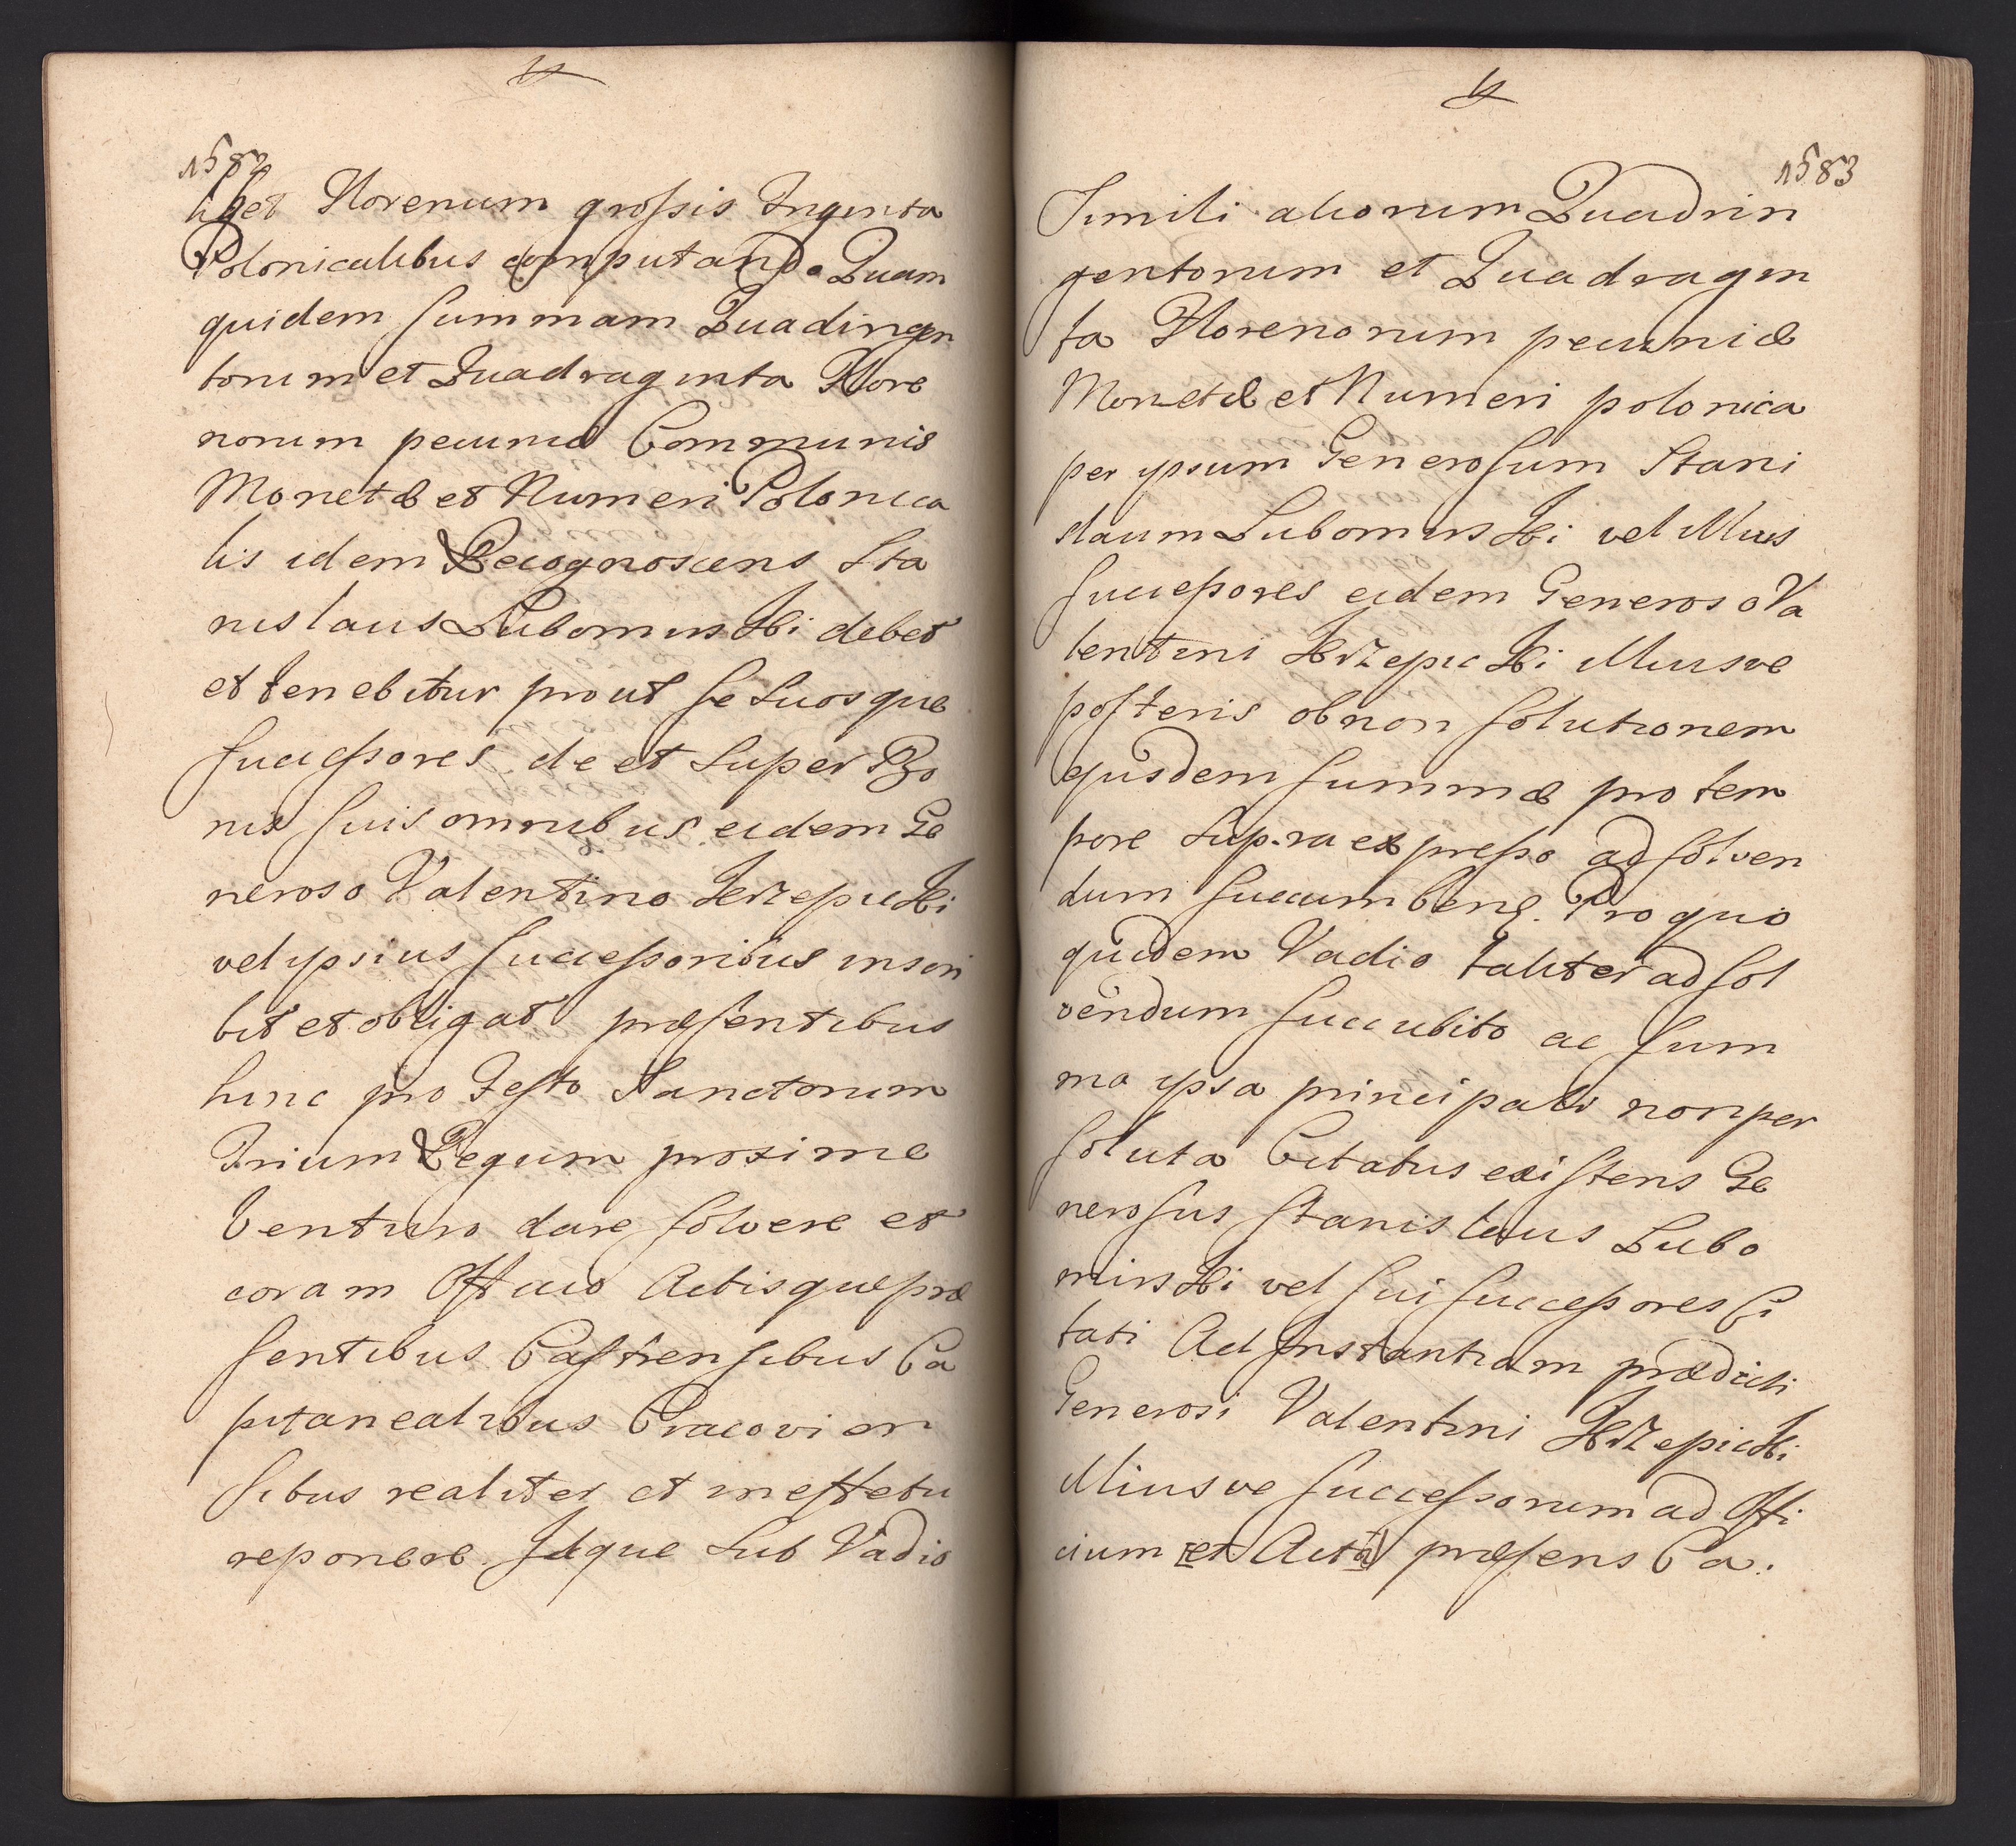 1582
libet Florenum grossis Triginta
Polonicalibus computando Quam
quidem summam Quadingen
torum et Quadraginta Flore
norum pecuniæ Communis
Monetæ et Numeri Polonica
lis idem Recognoscens Sta
nislaus Lubomirski debet
et tenebitur prout se suosque
successores de et super Bo
nis suis omnibus eidem Ge
neroso Valentino Krzepicki
vel ipsius successoribus inscri
bit et obligat præsentibus
hinc pro Festo Sanctorum
Trium Regum proxime
Venturo dare solvere et
coram Officio Actisque præ
sentibus Castrensibus Ca
pitanealibus Cracovien
sibus realiter et in effectu
reponere. Idque sub Vadio
1583
Simili aliorum Quadrin
gentorum et Quadragin
ta Florenorum pecuniæ
Monetæ et Numeri polonica
per ipsum Generosum Stani
slaum Lubomirski vel illius
successores eidem Generoso Va
lentini Krzepicki illiusve
posteris ob non solutionem
ejusdem summæ pro tem
pore supra expresso ad solven
dum succumbens. Pro quo
quidem Vadio taliter ad sol
vendum succubito ac sum
ma ipsa principali non per
soluta Citatus existens Ge
nerosus Stanislaus Lubo
mirski vel sui successores Ci
tati Ad Instantiam prædicti
Generosi Valentini Krzepicki
illiusve successorum ad Offi
cium et Acta præsens Ca.